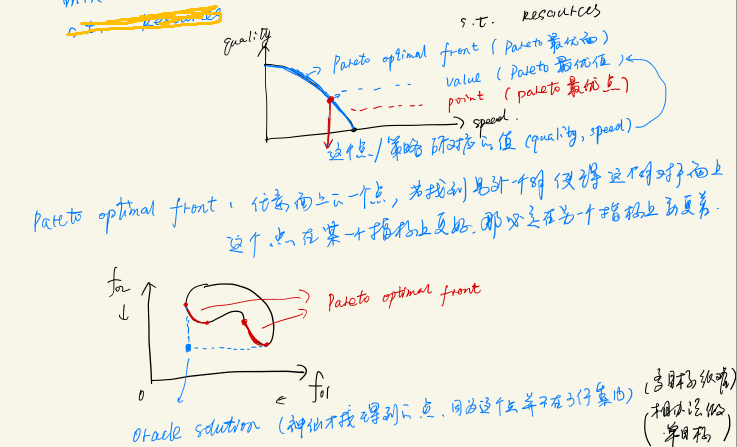 s.t. resources
s.t. resources
quality
Pareto optimal front (Pareto 最优面)
value (Pareto 最优值)
point (pareto 最优点)
speed
这个点/策略所对应的值 (quality, speed)
Pareto optimal front: 任意面上的一个点, 若找到另外一个解 使得这个解对于面上
这个点在某一个指标上更好, 那必定在另一个指标上更差.
f02
Pareto optimal front
0
f01
oracle solution (神仙才找得到的点, 因为这个点并不在可行集内)
(多目标很难)
(相办法做
单目标